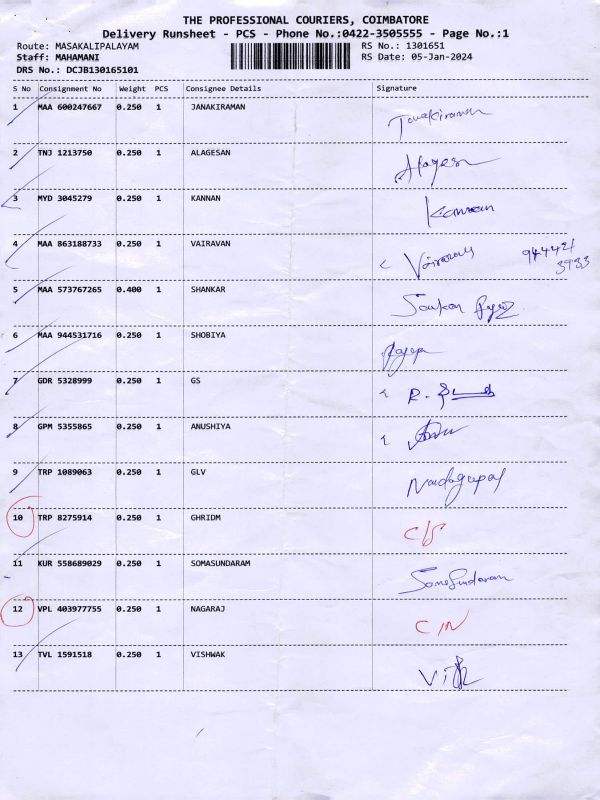 THE PROFESSIONAL COURIERS, COIMBATORE
Delivery Runsheet - PCS - Phone No.:0422-3505555 - Page No.:1
Route: MASAKALIPALAYAM RS No.: 1301651
Staff: MAHAMANI RS Date: 05-Jan-2024
DRS No.: DCJB130165101
S No Consignment No Weight PCS Consignee Details Signature
1 MAA 600247667 0.250 1 JANAKIRAMAN Janakiraman
2 TNJ 1213750 0.250 1 ALAGESAN
3 MYD 3045279 0.250 1 KANNAN Kannan
4 MAA 863188733 0.250 1 VAIRAVAN Vairavan 944421
3933
5 MAA 573767265 0.400 1 SHANKAR
6 MAA 944531716 0.250 1 SHOBIYA
7 GDR 5328999 0.250 1 GS
8 GPM 5355865 0.250 1 ANUSHIYA
9 TRP 1089063 0.250 1 GLV
10 TRP 8275914 0.250 1 GHRIDM
11 KUR 558689029 0.250 1 SOMASUNDARAM SomaSundaram
12 VPL 403977755 0.250 1 NAGARAJ C/N
13 TVL 1591518 0.250 1 VISHWAK